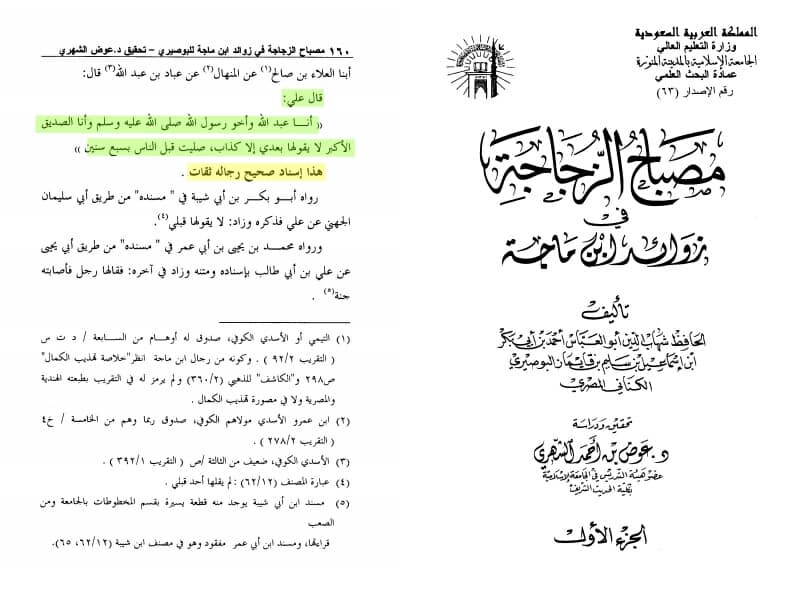 ١٦٠ مصباح الزجاجة في زوائد ابن ماجة للبوصيري – تحقيق د.عوض الشهري
أبنا العلاء بن صالح(١) عن المنهال(٢) عن عباد بن عبد الله(٣) قال:
قال علي:
(( أنـــا عبد الله وأخو رسول الله صلى الله عليه وسلم وأنا الصديق
الأكبر لا يقولها بعدي إلا كذاب، صليت قبل الناس بسبع سنين ))
هذا إسناد صحيح رجاله ثقات .
رواه أبـــو بكـــر بن أبي شيبة في " مسنده" من طريق أبي سليمان
الجهني عن علي فذكره وزاد: لا يقولها قبلي(٤).
ورواه محمـــد بن يحيى بن أبي عمر في " مسنده" من طريق أبي يحيى
عن علي بن أبي طالب بإسناده ومتنه وزاد في آخره: فقالها رجل فأصابته
جنة(٥) .
(١) التيمي أو الأسدي الكوفي، صدوق له أوهـــام من الســـابعة / د ت س
( التقريب ٩٢/٢ ) . وكونه من رجال ابن ماجة انظر"خلاصة تهذيب الكمال"
ص٢٩٨ و"الكاشف" للذهبي (٣٦٠/٢) ولم يرمز له في التقريب بطبعته الهندية
والمصرية ولا في مصورة تهذيب الكمال .
(٢) ابن عمرو الأسدي مولاهم الكوفي، صدوق ربما وهم من الخامسة / خ٤
( التقريب ٢٧٨/٢ ) .
(٣) الأسدي الكوفي، ضعيف من الثالثة /ص ( التقريب ٣٩٢/١ ) .
(٤) عبارة المصنف (٦٢/١٢) :لم يقلها أحد قبلي .
(٥) مسند ابن أبي شيبة يوجد منه قطعة يسيرة بقسم المخطوطات بالجامعة ومن
الصعب
قراءتها، ومسند ابن أبي عمر مفقود وهو في مصنف ابن شيبة (٦٢/١٢، ٦٥).
المملكة العربية السعودية
وزارة التعليم العالي
الجامعة الإسلامية بالمدينة المنورة
عمادة البحث العلمي
رقم الإصدار (٦٣)
مصباح الزجاجة
في
زوائد ابن ماجة
تأليف
الحافظ شهاب الدين أبو العباس أحمد بن أبي بكر
ابن إسماعيل بن سليم بن قايماز البوصيري
الكناني المصري
تحقيق ودراسة
د. عوض بن أحمد الشهري
عضو هيئة التدريس في الجامعة الإسلامية
بكلية الحديث الشريف
الجزء الأول